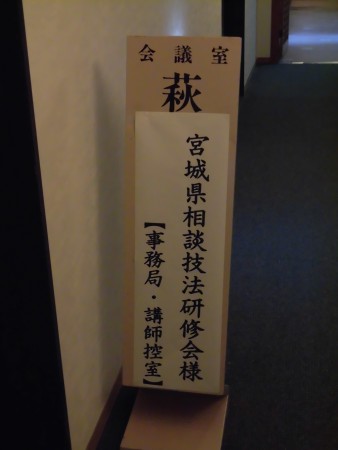 会議室
萩
宮城県相談技法研修会様
【事務局・講師控室】